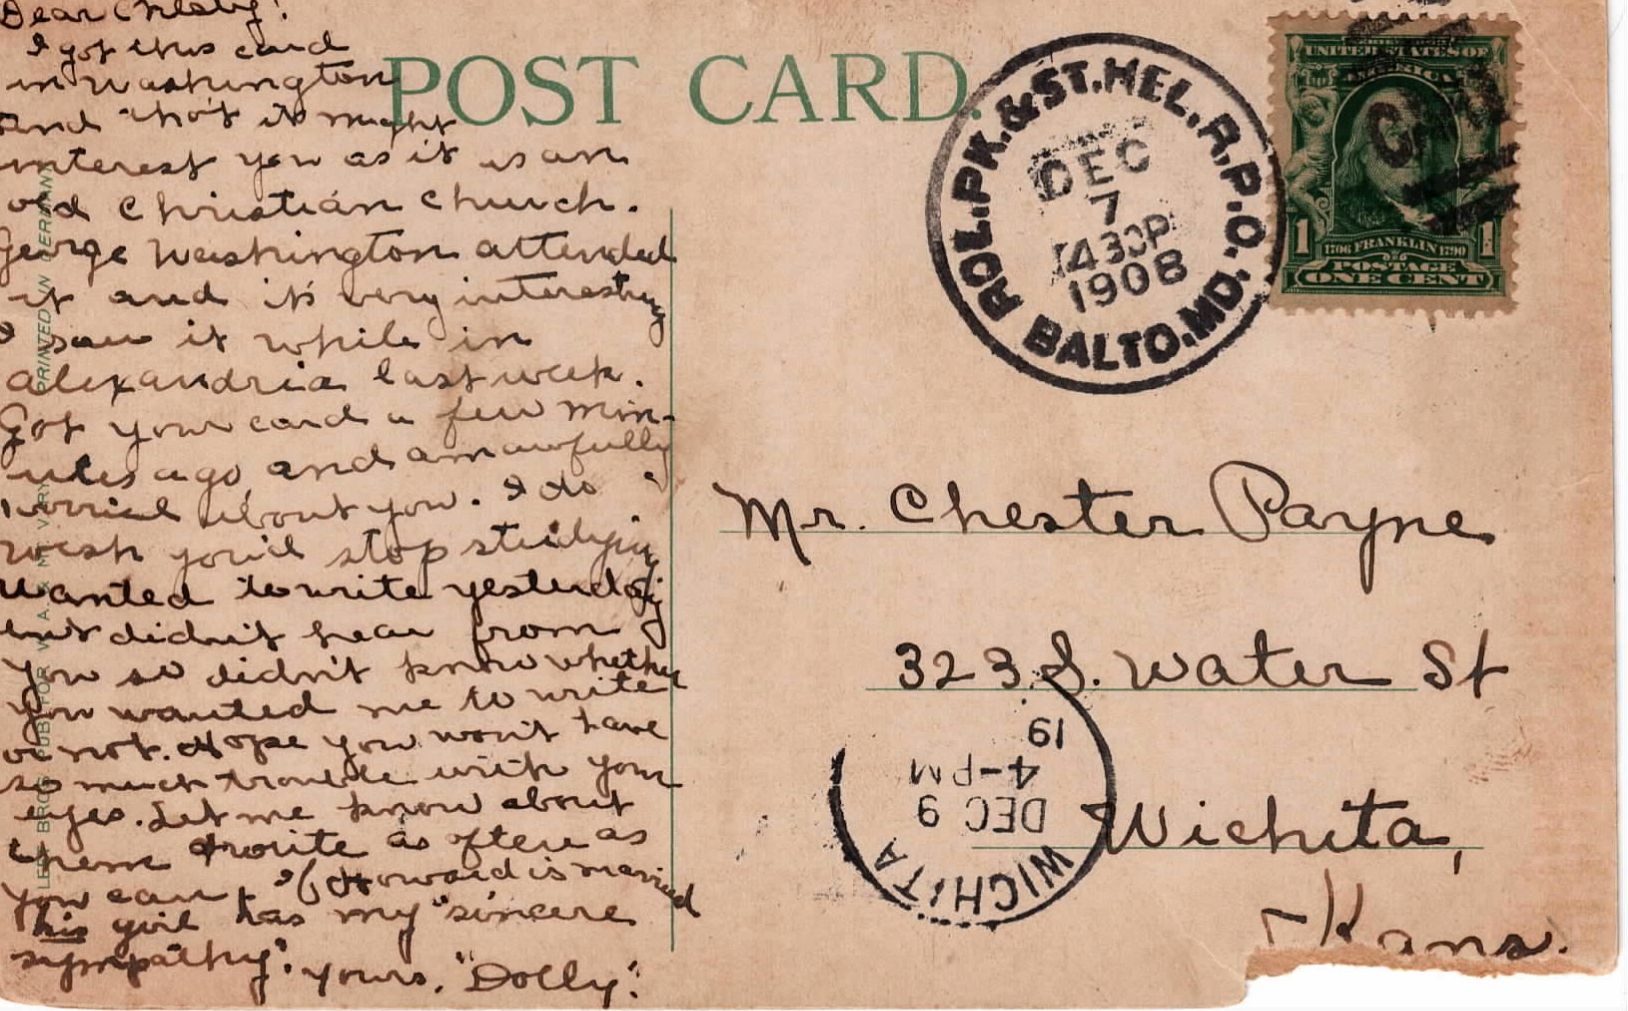 Dear Chesby!
I got this card
in Washington
and tho't it might
interest you as it is an
old Christian church.
George Washington attended
it and it's very interesting
I saw it while in
Alexandria last week.
Got your card a few min-
utes ago, and am awfully
worried about you. I do
wish you'd stop studying
Wanted to write yesterday
but didn't hear from
you so didn't know whether
you wanted me to write
or not. Hope you won't have
so much trouble with your
eyes. Let me know about
them & write as often as
you can. If Howard is married
his girl has my "sincere
sympathy". Yours, "Dolly".
POST CARD.
PRINTED IN GERMANY
BROS. PUB. FOR
ROL.PK.&ST.HEL.R.P.O.
DEC
7
430P
1908
BALTO.MD.
UNITED STATES OF
AMERICA
1 1706 FRANKLIN 1790 1
POSTAGE
ONE CENT
Mr. Chester Payne
323 S. Water St
Wichita,
Kans.
WICHITA
DEC 9
4-PM
19